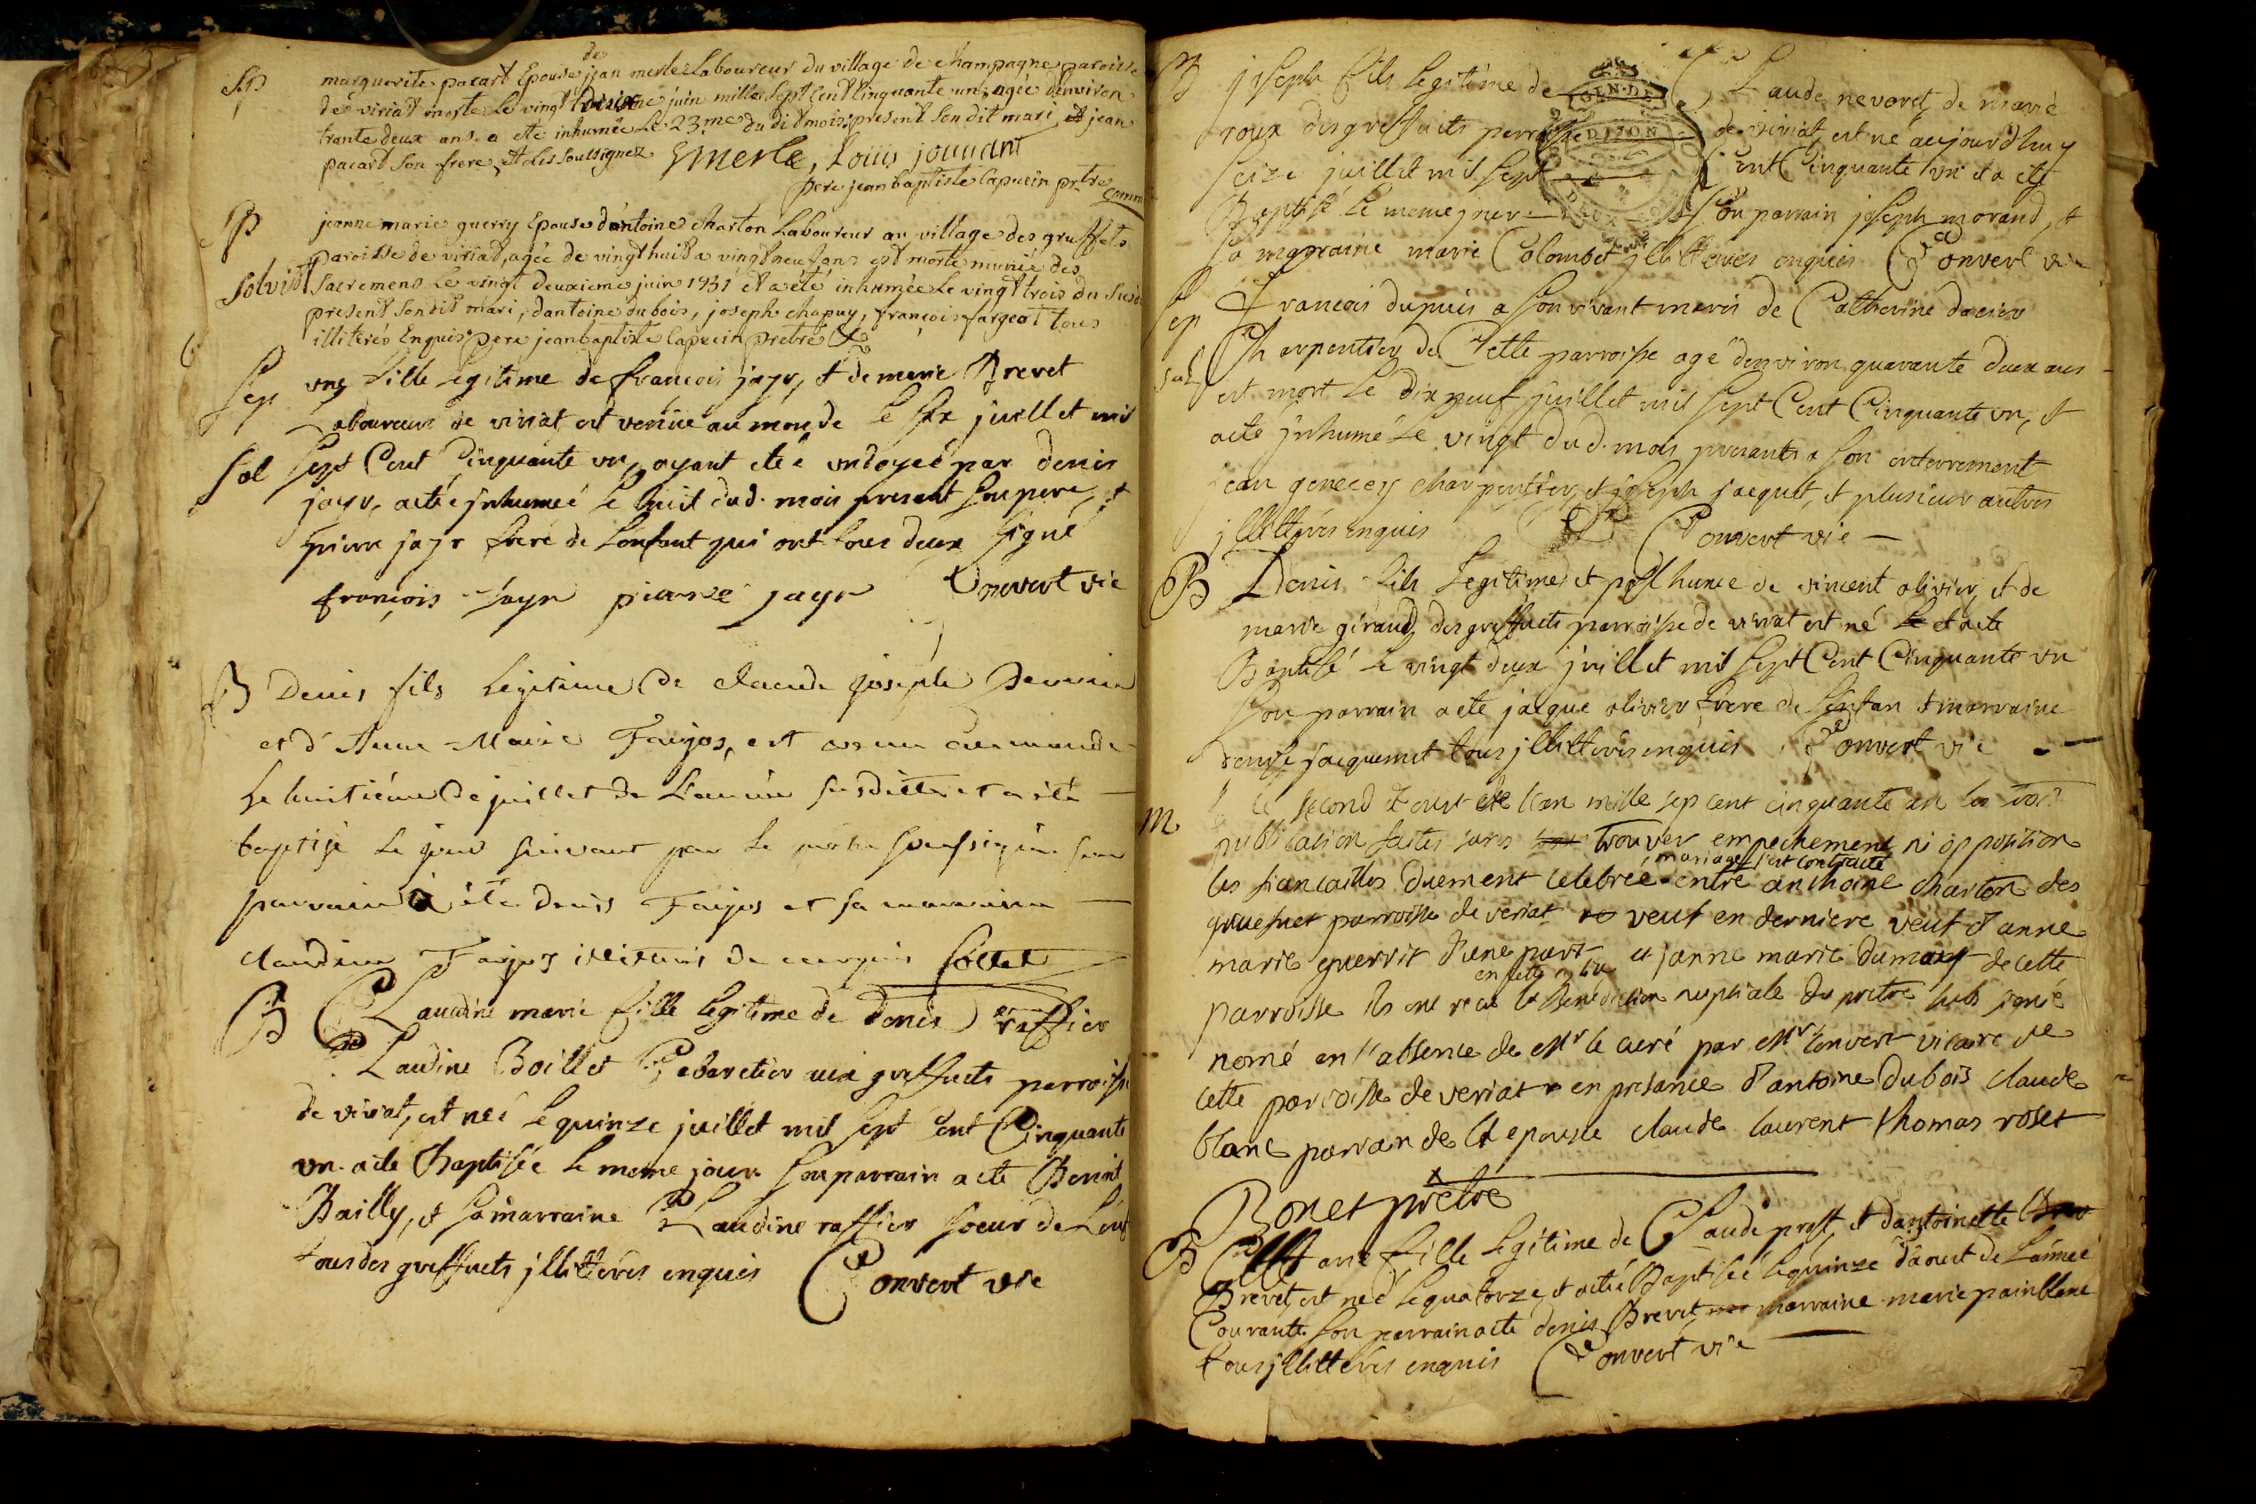 de
Sep marguerite pacart Epouse jean merle Laboureur du village de champagne paroisse
de viriat morte Le vingt juin mille sept Cent Cinquante un, agée denviron
trante deux ans. a eté inhumée Le 23.me du dit mois; present son dit mari, et jean
pacart son frere, et Les soussignez Gmerle, Louis jouvant
pere jean baptiste Capucin prtre comm
Sp jeanne marie guerry Epouse dantoine charton Laboureur au village des greffets
paroisse de viriat, agée de vingt huit a vingt neuf ans est morte munie des
Solvit Sacremens Le vingt deuxieme juin 1751 et a été inhumée Le vingt trois du susd
present sondit mari, dantoine dubois, joseph chapuy, françois fargeot tous
illiterés Enquis pere jean baptiste Capucin prêtre
Sep une fille Legitime de françois jayr, et de marie Brevet
Laboureur de viriat est venüe au monde le six juillet mil
Sol sept Cent Cinquante un, ayant eté ondoyée par denis
jayr, a eté jnhumeé le huit dud. mois present son pere, et
pierre jayr frere de Lenfant qui ont tous deux signé
françois jayr pierre jayr Convert vic
B Denis fils Légitime de claude joseph
et d'Anne-Marie Farjos, est venu au monde
Le huitiéme de juillet de L'année susditte et a été
baptisé Le jour suivant par Le prêtre soussigné son
parrain a été Denis Farjos et sa marraine
claudine Farjos illiterés de ce enquis Collet
B Claudine marie fille legitime de denis raffier et
Claudine Boillet Cabaretier aux greffets parroisse
de viriat, est neé le quinze juillet mil sept Cent Cinquante
un. a ete Baptisée le meme jour son parrain a ete Benoit
Bailly, et sa marraine Claudine raffier soeur de
tous des greffets jllittérés enquis Convert vic
B joseph fils legitime de Claude nevoret, de marie
roux des greffets parroisse de viriat est né aujourd'huy
seize juillet mil sept Cent Cinquante un et a eté
Baptisé le meme jour son parrain joseph morand, et
sa marraine marie Colombet jllittérés enquis Convert vic
GEN. DE DIJON
Sep François dupuis a son vivant maris de Catherine
Sol Charpentier de Cette parroisse agé denviron quarante deux ans
est mort le dix neuf juillet mil sept Cent Cinquante un, et
a eté jnhumé le vingt dud. mois presants a son enterrement
jean genecey charpentier, et joseph jacquet, et plusieur autres
jllittérés enquis Convert vic
B Denis fils Legitime et posthume de vincent olivier, et de
marie giraud des greffets parroisse de viriat est né et a eté
Baptisé le vingt deux juillet mil sept Cent Cinquante un
son parrain a eté jacque olivier frere de Lenfan et marraine
denise jacquemet tous jllittérés enquis Convert vic
M le second d'oust de l'an mille sept cent cinquante un les trois
publication faites sans trouver empechement ni opposition
les fiancailles duement celebrée mariage s'est contracté entre anthoine charton des
grueffet parroisse de veriat veuf en derniere veuf d'anne
marie guerrit d'une part et janne marie dumas de cette
parroisse ils ont recu en cette eglise la Benediction nuptiale du prêtre sub signé
nomé en l'absence de Mr le curé par Mr Convert vicaire de
cette parroisse de veriat en presance d'antoine dubois claude
blanc parran de l'epouse claude laurent thomas roset
Bonet prêtre
B fille Legitime de Claude et d'antoinette
Brevet est neé le quatorze, et a eté Baptiseé le quinze daoust de Lanneé
Courante son parrain a eté denis Brevet marraine marie painblanc
tous jllittérés enquis Convert vic